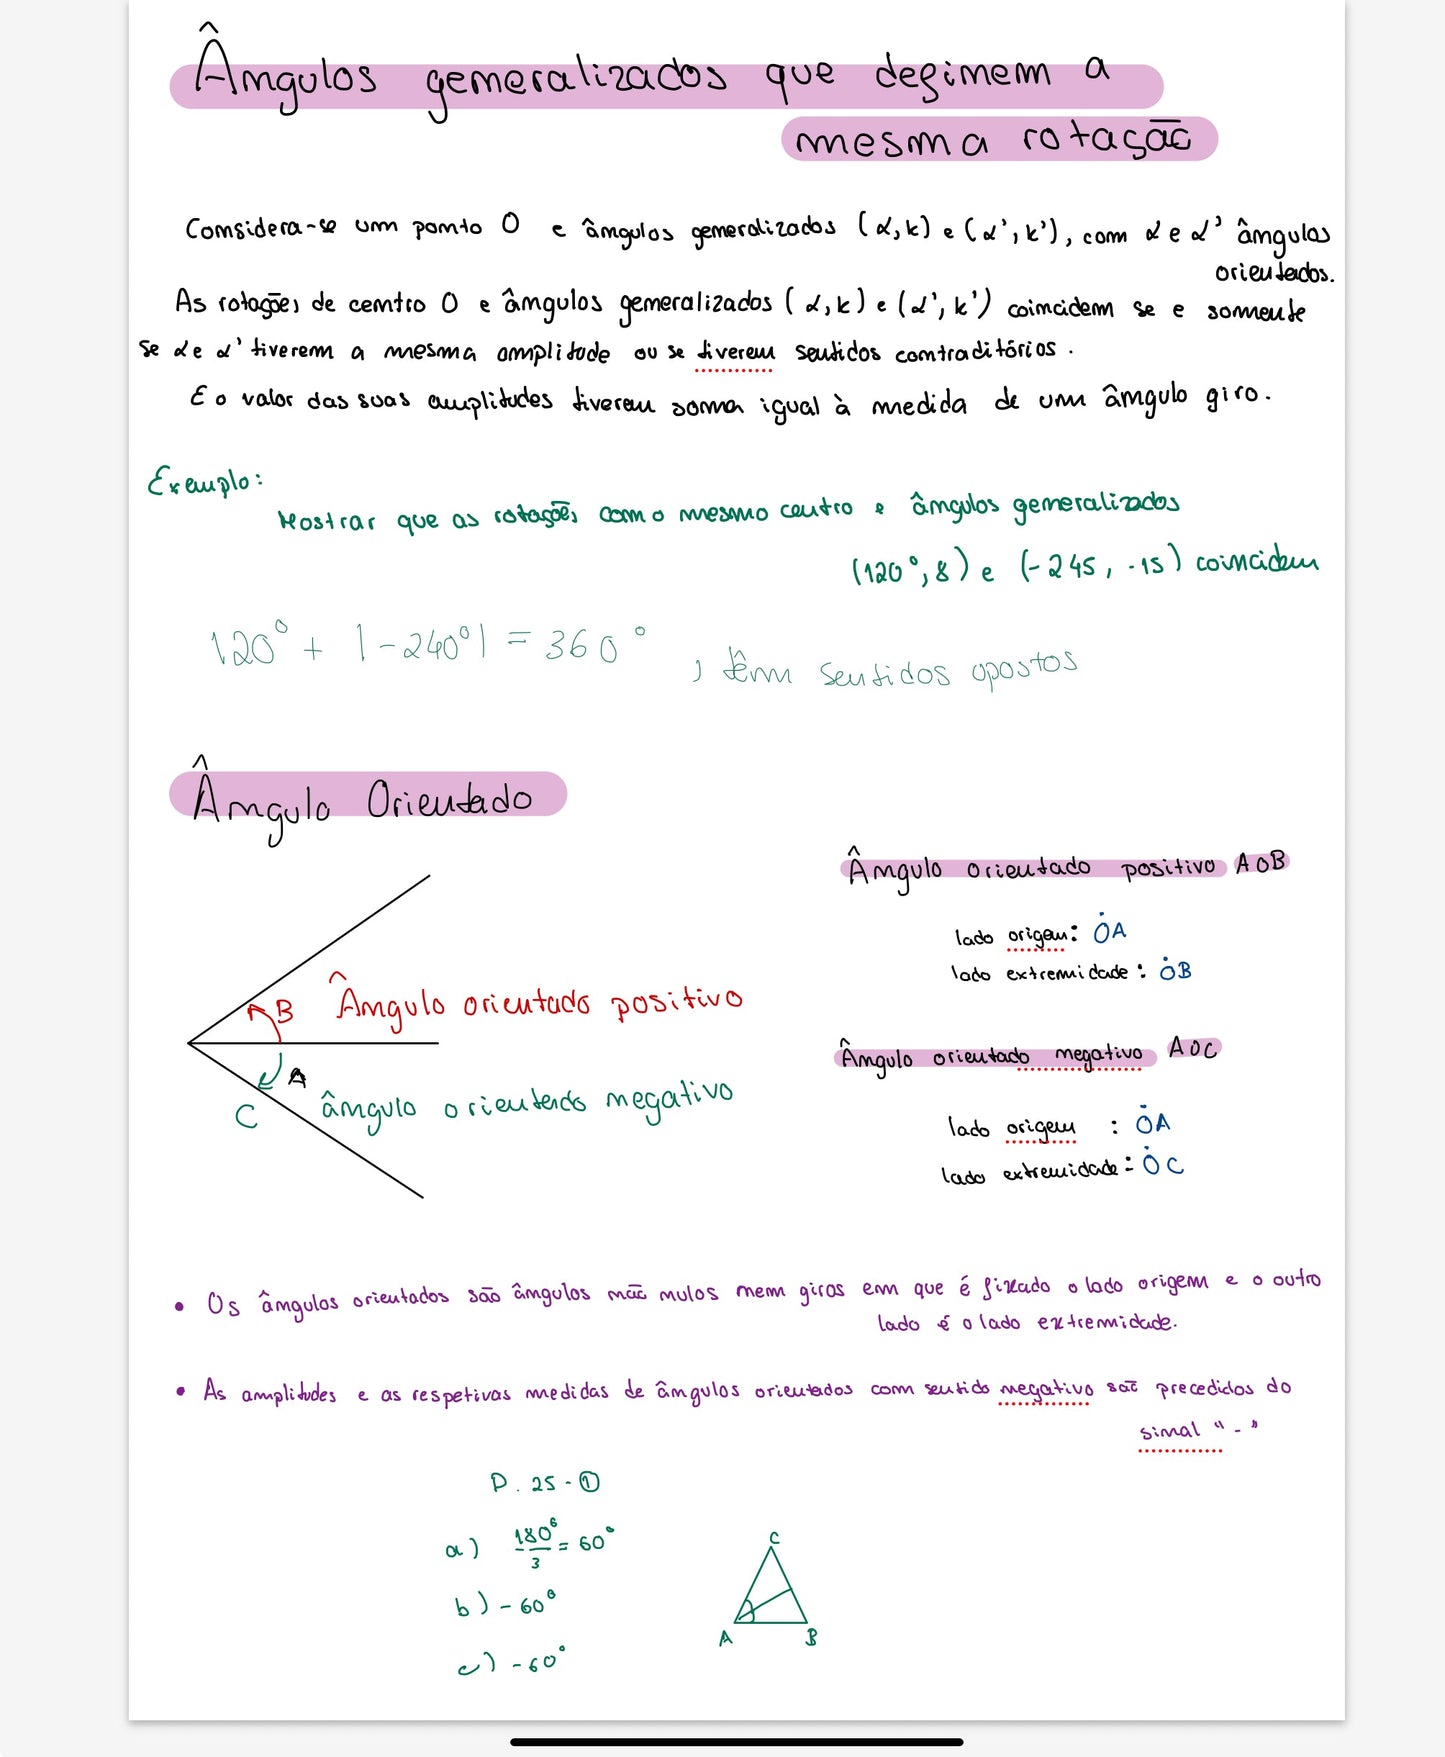 Ângulos generalizados que definem a
mesma rotação
Considera-se um ponto O e ângulos generalizados (α, k) e (α', k'), com α e α' ângulos
orientados.
As rotações de centro O e ângulos generalizados (α, k) e (α', k') coincidem se e somente
se α e α' tiverem a mesma amplitude ou se tiverem sentidos contraditórios.
E o valor das suas amplitudes tiverem soma igual à medida de um ângulo giro.
Exemplo:
Mostrar que as rotações com o mesmo centro e ângulos generalizados
(120°, 8) e (-245, -15) coincidem
120° + |-240°| = 360°, têm sentidos opostos
Ângulo Orientado
Ângulo orientado positivo AOB
lado origem: ȮA
lado extremidade: ȮB
B Ângulo orientado positivo
A
C ângulo orientado negativo
Ângulo orientado negativo AOC
lado origem : ȮA
lado extremidade: ȮC
• Os ângulos orientados são ângulos não nulos nem giros em que é fixado o lado origem e o outro
lado é o lado extremidade.
• As amplitudes e as respetivas medidas de ângulos orientados com sentido negativo são precedidos do
sinal "-"
P. 25 - ①
a) 180°/3 = 60°
b) -60°
c) -60°
C
A B